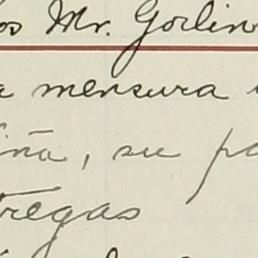 os Mr. Gorlin
a mensura
iña, su pa
tregas